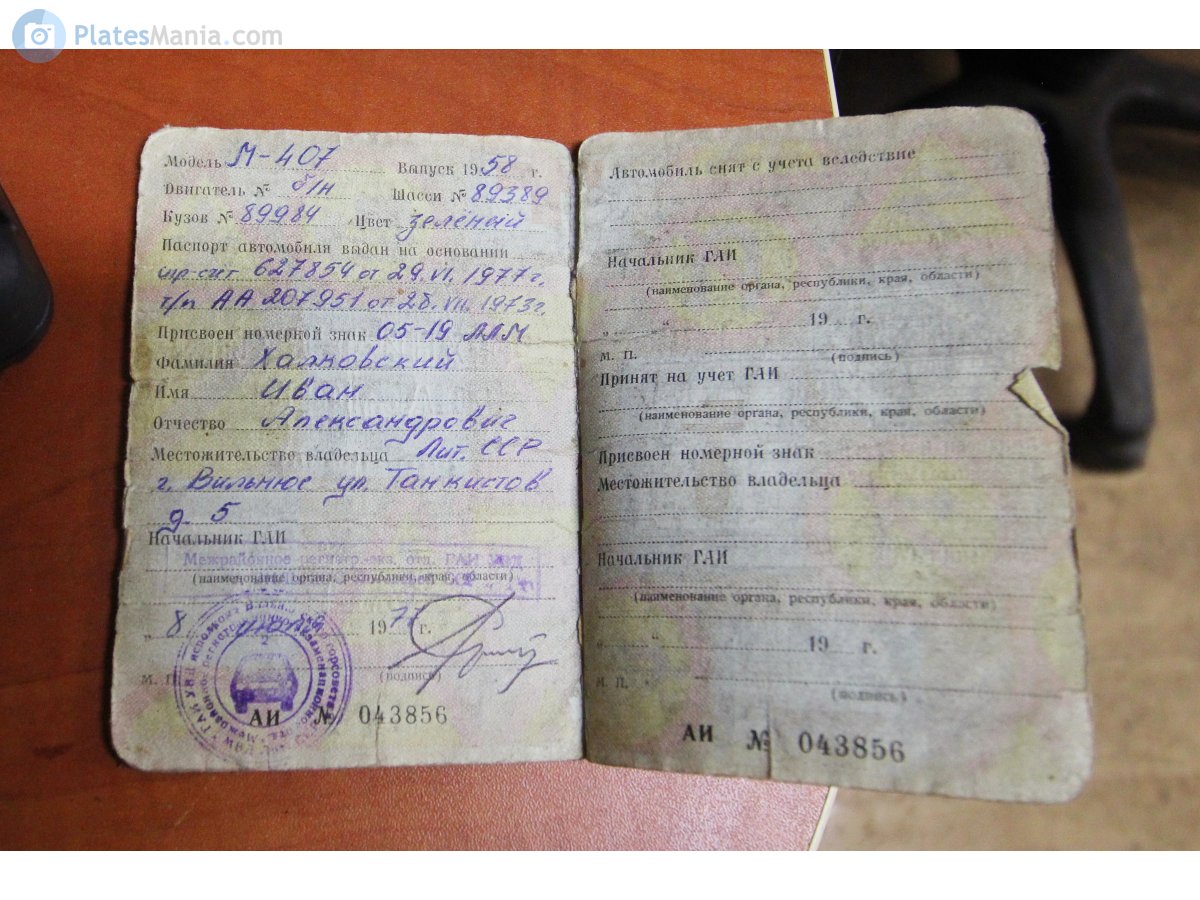 PlatesMania.com
Модель М-407 Выпуск 1958 г.
Двигатель № б/н Шасси № 89389
Кузов № 89984 Цвет зелёный
Паспорт автомобиля выдан на основании
627854 от 29.VI.1977г.
т/п АА 207951 от 28.VII.1973г.
Присвоен номерной знак 05-19 ЛЛМ
Фамилия Халковский
Имя Иван
Отчество Александрович
Местожительство владельца Лит. ССР
г. Вильнюс ул. Танкистов
д. 5
Начальник ГАИ
Межрайонное отд. ГАИ
(наименование органа, республики, края, области)
„ 8 " 1977г.
М. П. (подпись)
АИ № 043856
Автомобиль снят с учета вследствие
Начальник ГАИ
(наименование органа, республики, края, области)
„ " 19 г.
М. П. (подпись)
Принят на учет ГАИ
(наименование органа, республики, края, области)
Присвоен номерной знак
Местожительство владельца
Начальник ГАИ
(наименование органа, республики, края, области)
„ " 19 г.
М. П. (подпись)
АИ № 043856